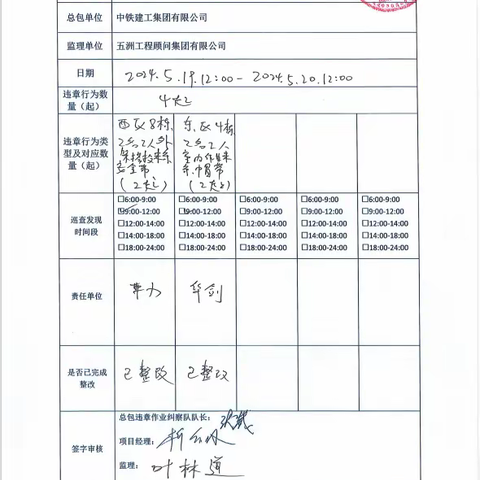 总包单位 中铁建工集团有限公司
监理单位 五洲工程顾问集团有限公司
日期 2024.5.19.12:00- 2024.5.20.12:00
违章行为数
量（起） 4起
违章行为类
型及对应数
量（起）
西区8栋, 东区4栋
(2起) (2起)
巡查发现
时间段
□6:00-9:00 □6:00-9:00 □6:00-9:00 □6:00-9:00 □6:00-9:00
□9:00-12:00 □9:00-12:00 □9:00-12:00 □9:00-12:00 □9:00-12:00
□12:00-14:00 □12:00-14:00 □12:00-14:00 □12:00-14:00 □12:00-14:00
□14:00-18:00 □14:00-18:00 □14:00-18:00 □14:00-18:00 □14:00-18:00
□18:00-24:00 □18:00-24:00 □18:00-24:00 □18:00-24:00 □18:00-24:00
责任单位 华力 华剑
是否已完成
整改 已整改 已整改
总包违章作业纠察队队长：
签字审核 项目经理：
监理： 叶林道